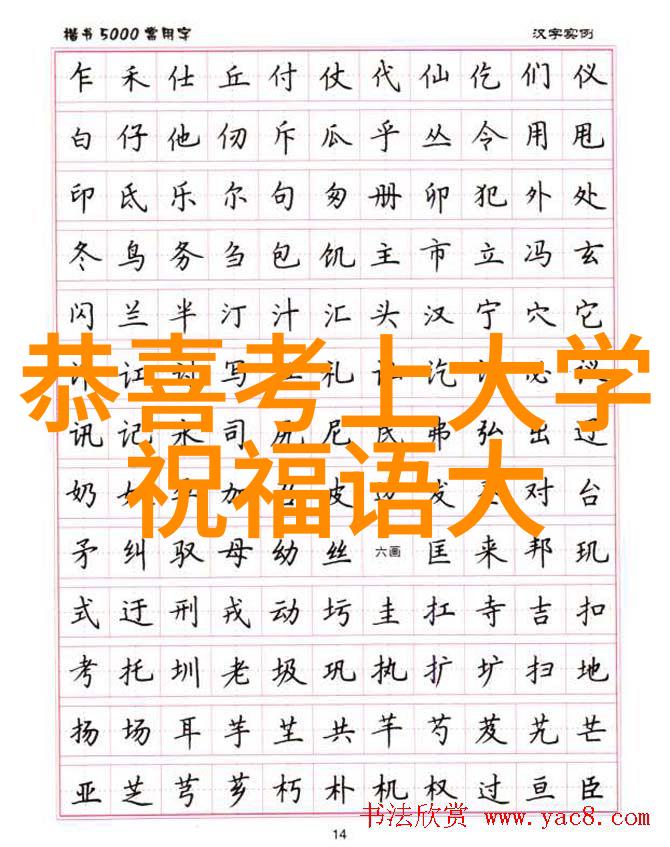 楷书5000常用字 汉字实例
乍 禾 仕 丘 付 仗 代 仙 仡 们 仪
白 仔 他 仞 斥 瓜 乎 丛 令 用 甩
印 氐 乐 尔 句 匆 册 卯 犯 外 处
冬 鸟 务 刍 包 饥 主 市 立 冯 玄
闪 兰 半 汀 汁 汇 头 汉 宁 穴 它
写 礼 必 议
恭喜考上大学
讯 记 永 司 尻 尼 民 弗 弘 出 辽
奶 加 皮 边 发 对 台
祝福语大
矛 纠 驭 母 幼 丝 六画 匡 耒 邦 玑
式 迂 刑 戎 动 圬 圭 扛 寺 吉 扣
考 托 圳 老 圾 巩 执 扩 圹 扫 地
扬 场 耳 芋 芏 共 芊 芍 芨 艽 芒
亚 芝 芎 芗 朽 朴 机 权 过 亘 臣
书法欣赏 www.yac8.com
14